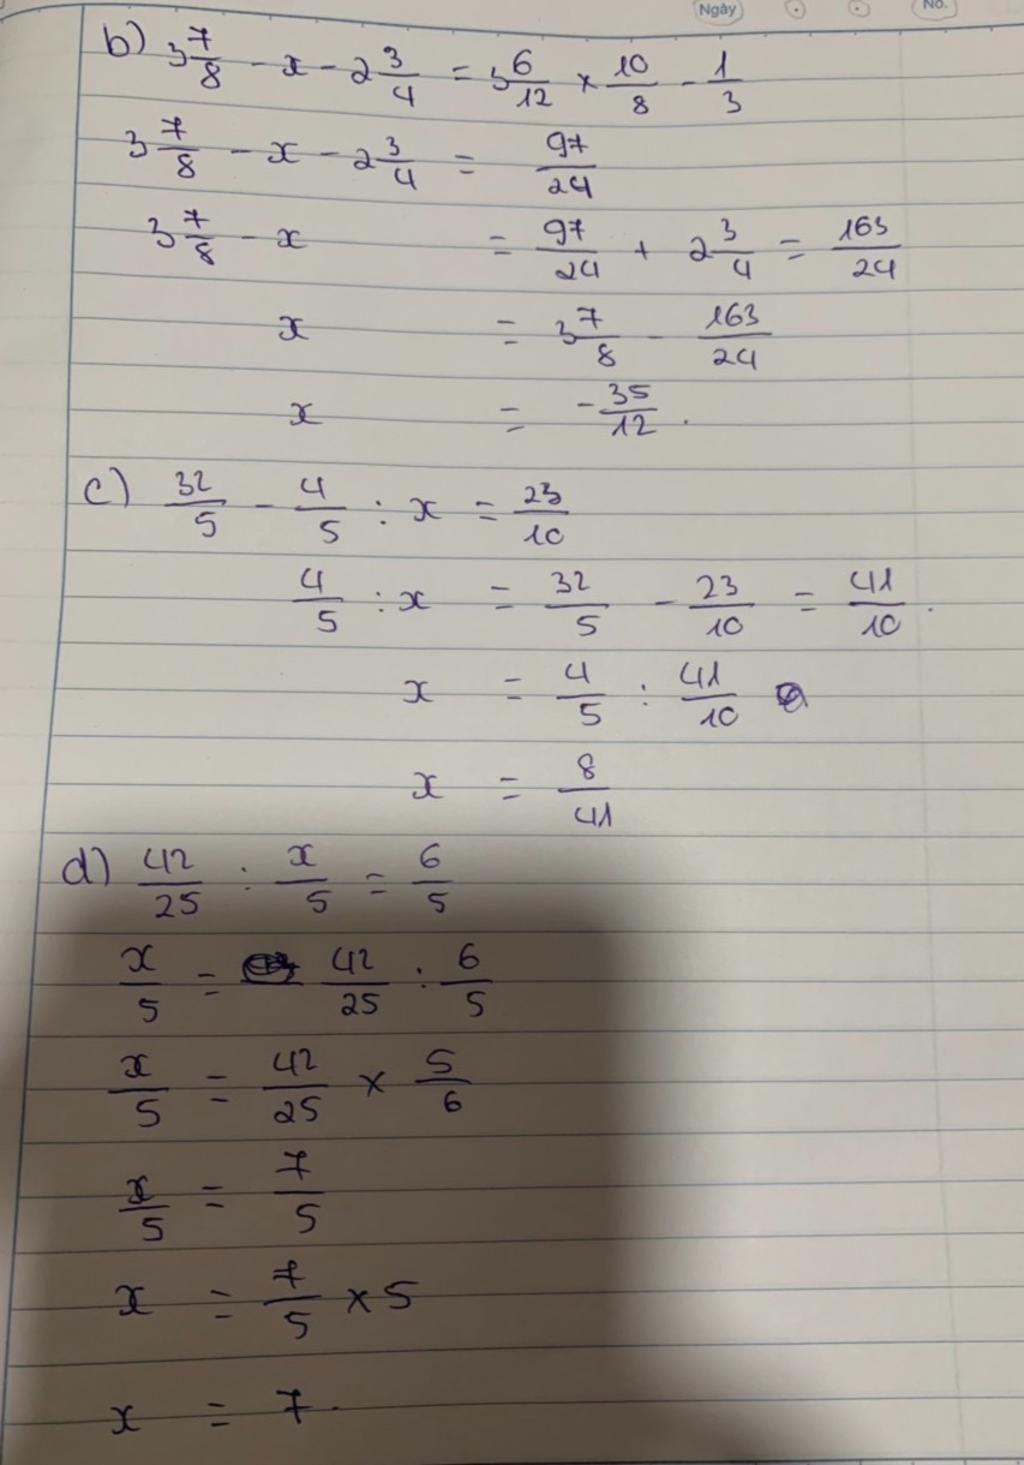 Ngày No.
b) 3 7/8 - x - 2 3/4 = 3 6/12 × 10/8 - 1/3
3 7/8 - x - 2 3/4 = 97/24
3 7/8 - x = 97/24 + 2 3/4 = 163/24
x = 3 7/8 - 163/24
x = - 35/12 .
c) 32/5 - 4/5 : x = 23/10
4/5 : x = 32/5 - 23/10 = 41/10 .
x = 4/5 : 41/10
x = 8/41
d) 42/25 : x/5 = 6/5
x/5 = 42/25 : 6/5
x/5 = 42/25 × 5/6
x/5 = 7/5
x = 7/5 × 5
x = 7 .